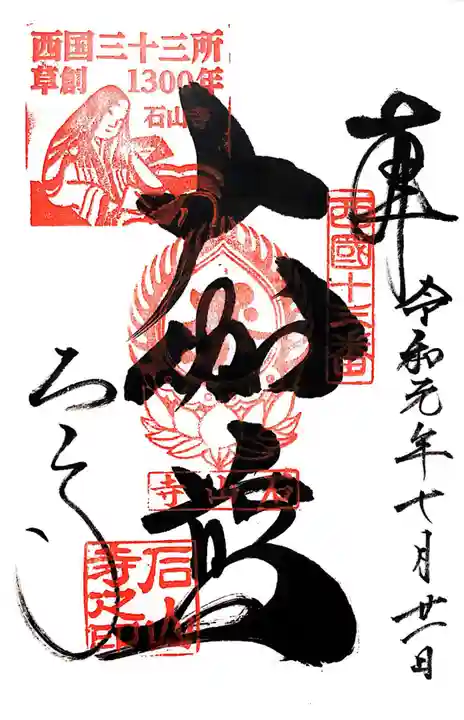 西国三十三所
草創 1300年
石山寺
西國十三番
令和元年十月廿一日
大伽藍
石山寺
石山寺之印